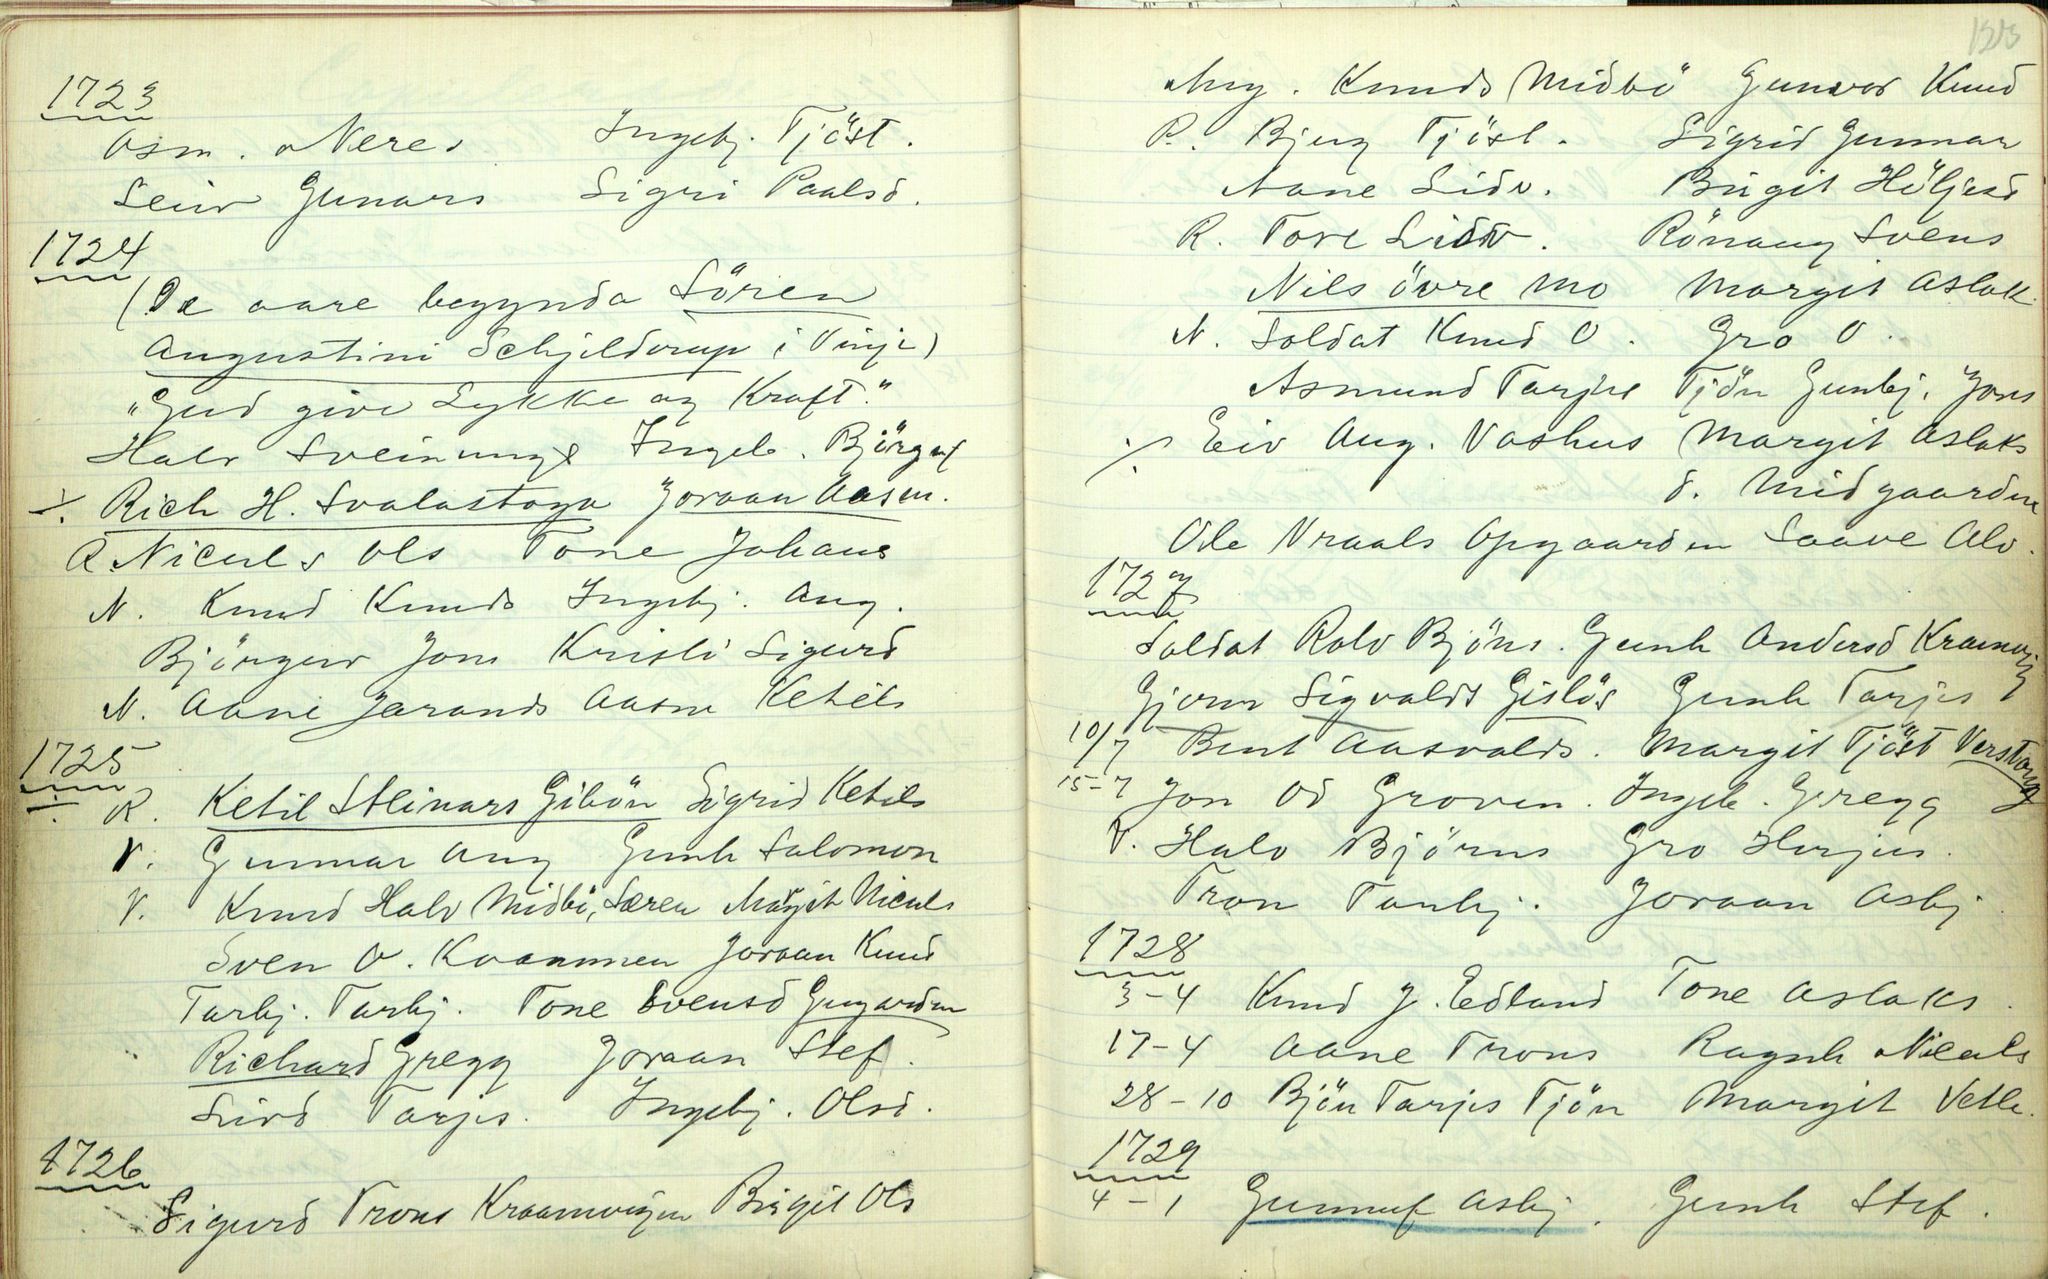 1723
Osm. Neres Ingebj. Tjöst.
Seiv Gunars Sigri Paalsd.
1724
(De aare begynda Sören
Augustini Schjelderup i Vinje)
"Gud give Lykke og Kraft."
Halv Sveinungs Ingeb. Björguf
Rich H. Svalastoga Joraan Aasm.
Niculs Ols Tone Johans
N. Knud Knuds Ingebj. Aug.
Björguv Jons Kristi Sigurd
N. Aane Jarands Aasne Ketils
1725
R. Ketil Steinars Gibön Sigrid Ketils
V. Gunnar Aug Gunh Salomon
V. Knud Halv Midbö, Særen Margit Niculs
Sven O. Kvammen Joraan Knud
Tarbj. Tarbj. Tone Svensd Gugarden
Richard Gregg Joraan Stef.
Livd Tarjes. Ingebj. Olsd.
1726
Sigurd Trons Kraamvigen Birgit Ols
125
Aug. Knuds Midbö Gunvor Knud
R. Bjug Tjöst. Sigrid Gunnar
Aane Lidv. Birgit Höljesd
R. Tove Lidv. Rönaug Svens
Nils övre Mo Margit Aslak.
N. Soldat Knud O. Gro O.
Asmund Tarjei Tjön Gunbj. Jons
Eiv Aug. Vashus Margit Aslaks
d. Midgaarden
Ole Vraals Opgaarden Saave Alv.
1727
Soldat Rolv Bjöns. Gunh Andersd Kraamvig
Gjerm Sigvalds Gislös Gunh Tarjes
10/7 Bent Aasvalds. Margit Tjöst Verstog
15-7 Jon Od Groven. Ingeb. Gregg
V. Halv Björns Gro Herjus.
Tron Tanbj. Joraan Asbj.
1728
3-4 Knud J. Edland Tone Aslaks.
17-4 Aane Trons Ragnh Niculs
28-10 Bjön Tarjes Tjön Margit Vetle.
1729
4-1 Gunnuf Asbj. Gunh Stef.